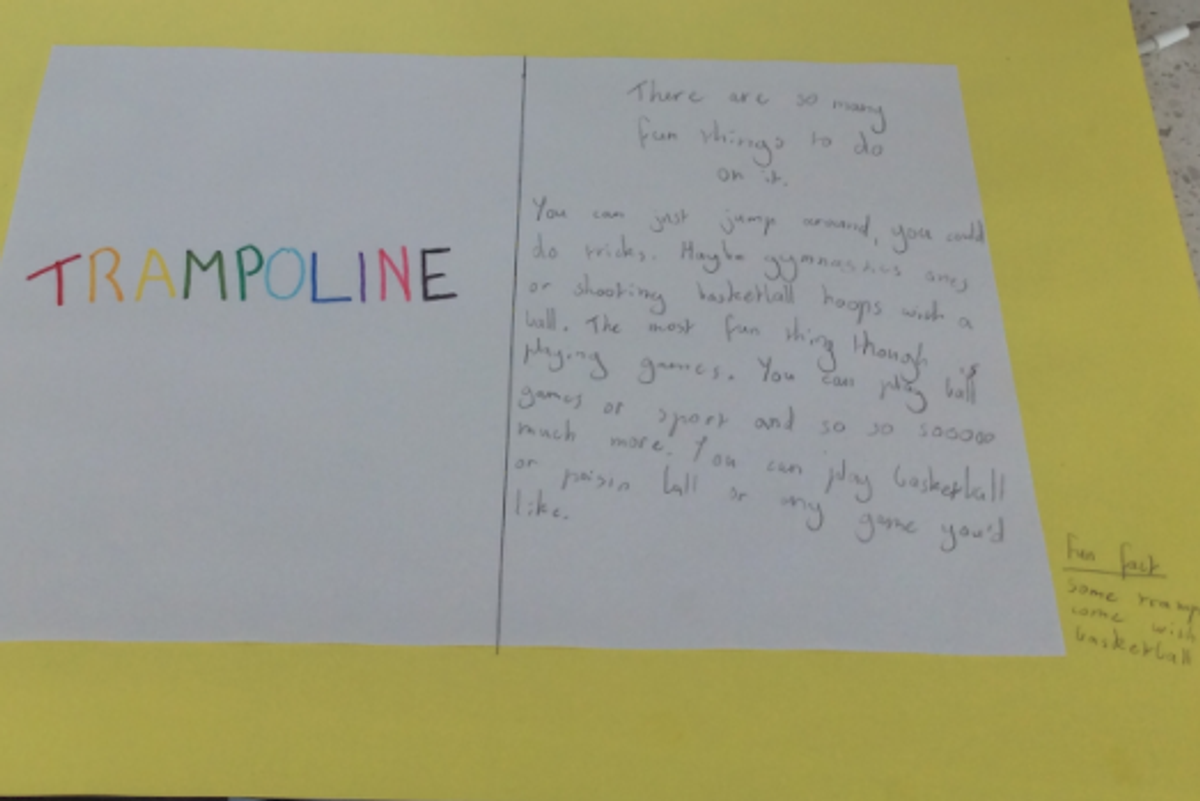 TRAMPOLINE
There are so many
fun things to do
on it.
You can just jump around, you could
do tricks. Maybe gymnastics ones
or shooting basketball hoops with a
ball. The most fun thing though is
playing games. You can play ball
games or sport and so so sooooo
much more. You can play basketball
or poisin ball or any game you'd
like.
Fun fact
some tramp
come with
basketball